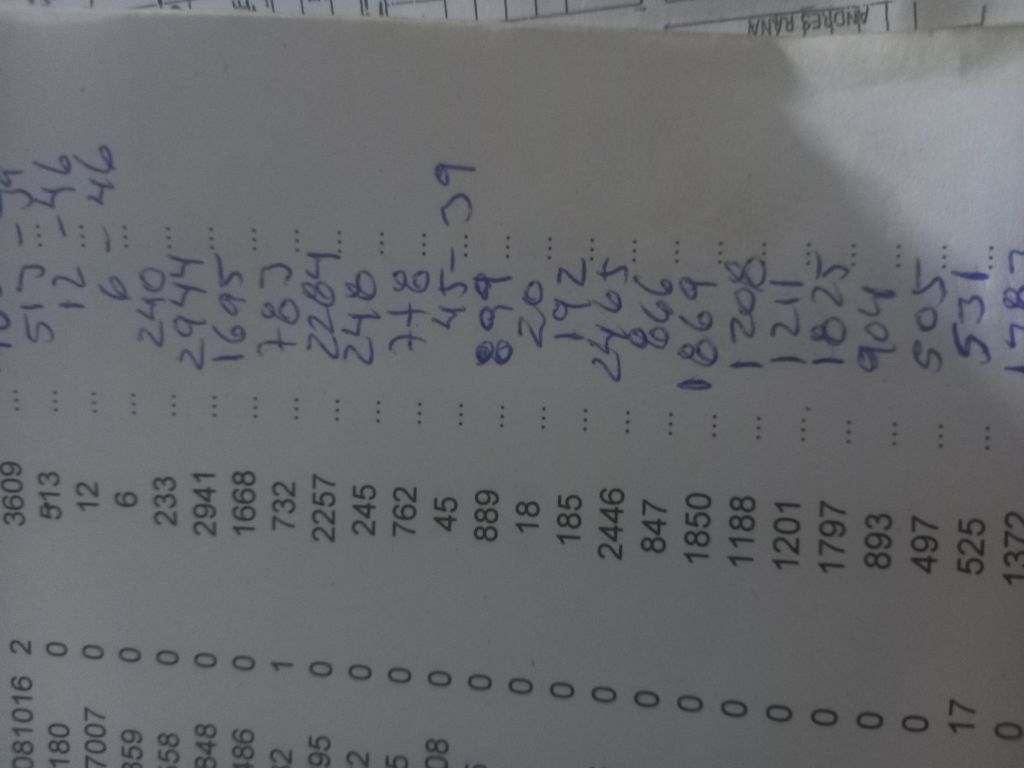 ANDRES RANA
081016 2 3609 ...
180 0 513 ... 513 ... -
7007 0 12 ... 12 ... - 46
859 0 6 ... 6 ... - 46
558 0 233 ... 240 ...
848 0 2941 ... 2944 ...
486 0 1668 ... 1695 ...
2 1 732 ... 783 ...
95 0 2257 ... 2284 ...
2 0 245 ... 248 ...
5 0 762 ... 778 ...
08 0 45 ... 45 ... - 39
0 889 ... 899 ...
0 18 ... 20 ...
0 185 ... 192 ...
0 2446 ... 2465 ...
0 847 ... 866 ...
0 1850 ... 1869 ...
0 1188 ... 1208 ...
0 1201 ... 1211 ...
0 1797 ... 1825 ...
0 893 ... 904 ...
0 497 ... 505 ...
17 525 ... 531 ...
0 1372